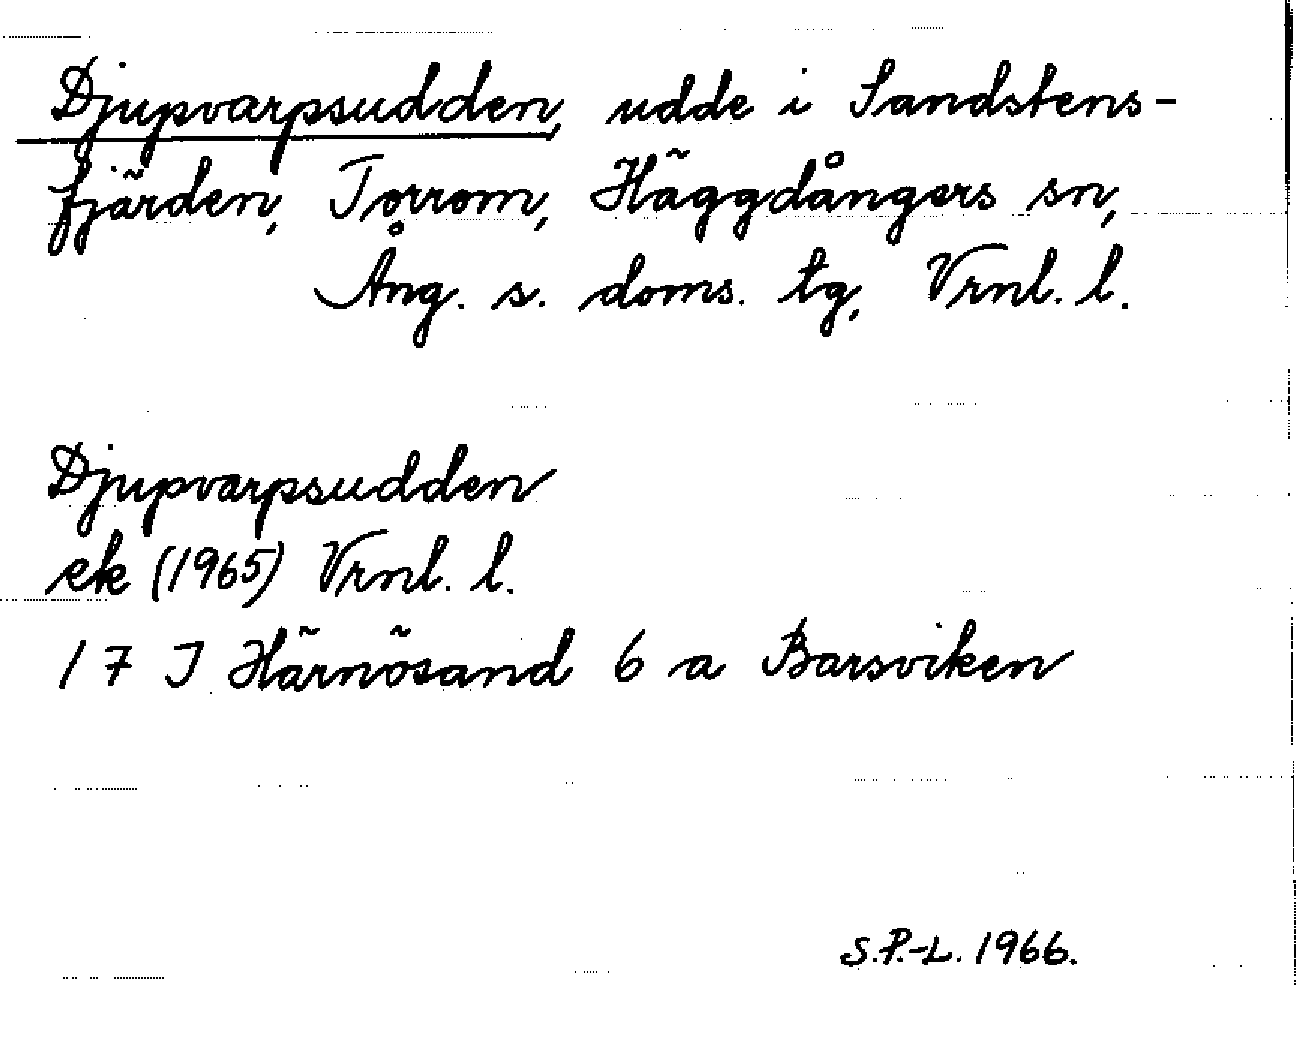 Djupvarpsudden, udde i Sandstens-
fjärden, Torrom, Häggdångers sn,
Ång. s. doms. tg, Vrnl. l.
Djupvarpsudden
ek (1965) Vrnl. l.
17 I Härnösand 6 a Barsviken
S.P.-L. 1966.